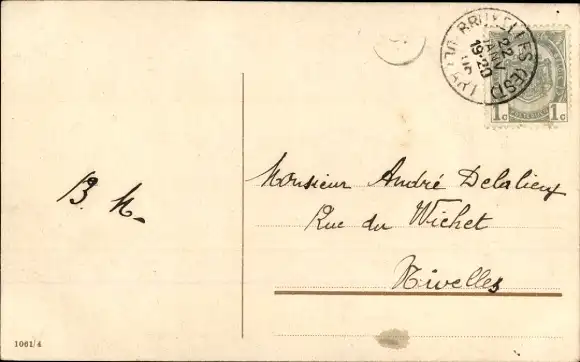 BRUXELLES (EST)
DÉPART
22
JANV
19-20
1c 1c
B. N.
Monsieur André Delalieux
Rue du Wichet
Nivelles
1061/4